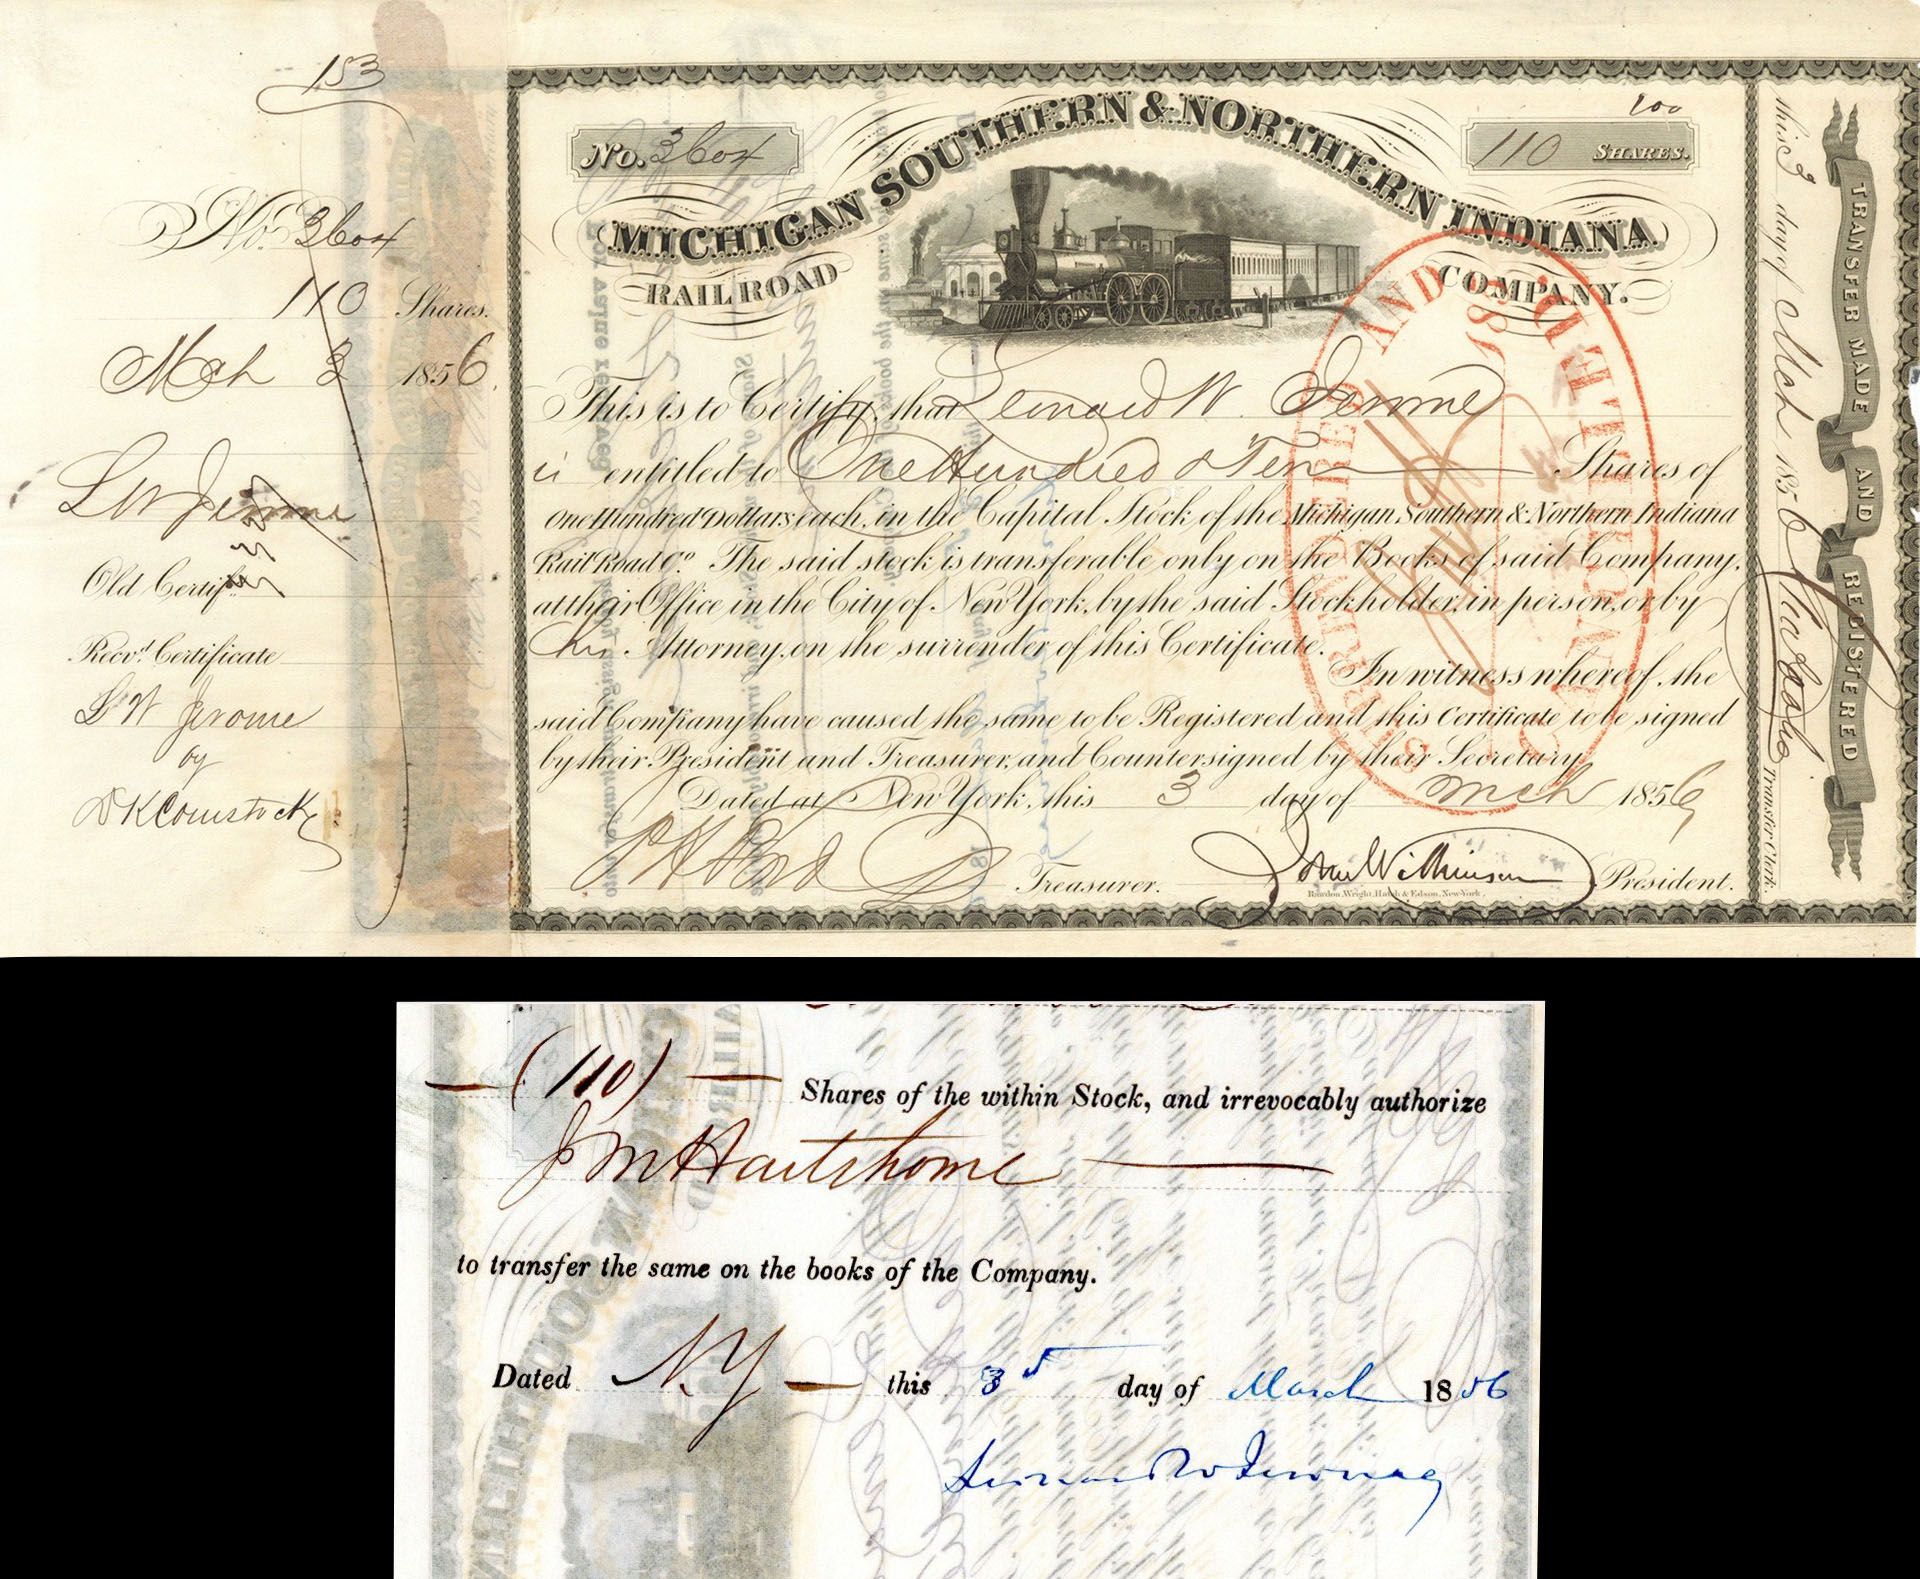 153
No. 3604
110 Shares.
Mch 3 1856
L W Jerome
Old Certif
Recvd. Certificate
L W Jerome
by
D K Comstock
No. 3604
100
110 SHARES.
MICHIGAN SOUTHERN & NORTHERN INDIANA
RAILROAD COMPANY.
This is to Certify, that Leonard W. Jerome
is entitled to One Hundred & Ten Shares of
One Hundred Dollars, each, in the Capital Stock of the Michigan Southern & Northern Indiana
Rail Road Co. The said stock is transferable only on the Books of said Company,
at their Office in the City of New York, by the said Stockholder, in person, or by
his Attorney, on the surrender of this Certificate.
In witness whereof, the
said Company have caused the same to be Registered and this Certificate to be signed
by their President and Treasurer, and Countersigned by their Secretary
Dated at New York, this 3 day of Mch 1856
Treasurer. John Wilkinson President.
Rawdon, Wright, Hatch & Edson, New-York.
SURRENDERED AND CANCELLED
TRANSFER MADE AND REGISTERED
this 3 day of Mch 1856
Transfer Clerk.
(110) Shares of the within Stock, and irrevocably authorize
J M Hartshorne
to transfer the same on the books of the Company.
Dated N.Y this 3d day of March 1856
Leonard W Jerome